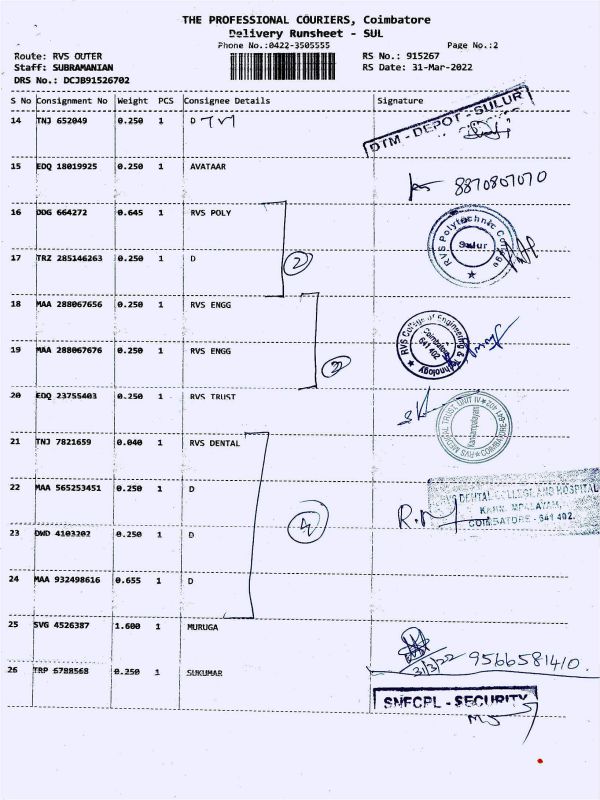 THE PROFESSIONAL COURIERS, Coimbatore
Delivery Runsheet - SUL
Phone No.:0422-3505555
Page No.:2
Route: RVS OUTER
RS No.: 915267
Staff: SUBRAMANIAN
RS Date: 31-Mar-2022
DRS No.: DCJB91526702
S No Consignment No Weight PCS Consignee Details Signature
14 TNJ 652049 0.250 1 D
DTM - DEPOT - SULUR
15 EDQ 18019925 0.250 1 AVATAAR
8870807070
16 DDG 664272 0.645 1 RVS POLY
RVS Polytechnic College
Sulur
17 TRZ 285146263 0.250 1 D
2
18 MAA 288067656 0.250 1 RVS ENGG
RVS College of Engineering & Technology
Coimbatore
641 402
19 MAA 288067676 0.250 1 RVS ENGG
2
20 EDQ 23755403 0.250 1 RVS TRUST
RVS MEDICAL TRUST UNIT IV COIMBATORE-641 402
Kannampalayam
21 TNJ 7821659 0.040 1 RVS DENTAL
22 MAA 565253451 0.250 1 D
RVS DENTAL COLLEGE AND HOSPITAL
COIMBATORE - 641 402.
4
23 DWD 4103202 0.250 1 D
24 MAA 932498616 0.655 1 D
25 SVG 4526387 1.600 1 MURUGA
31/3/22 9566581410.
26 TRP 6788568 0.250 1 SUKUMAR
SNFCPL - SECURITY